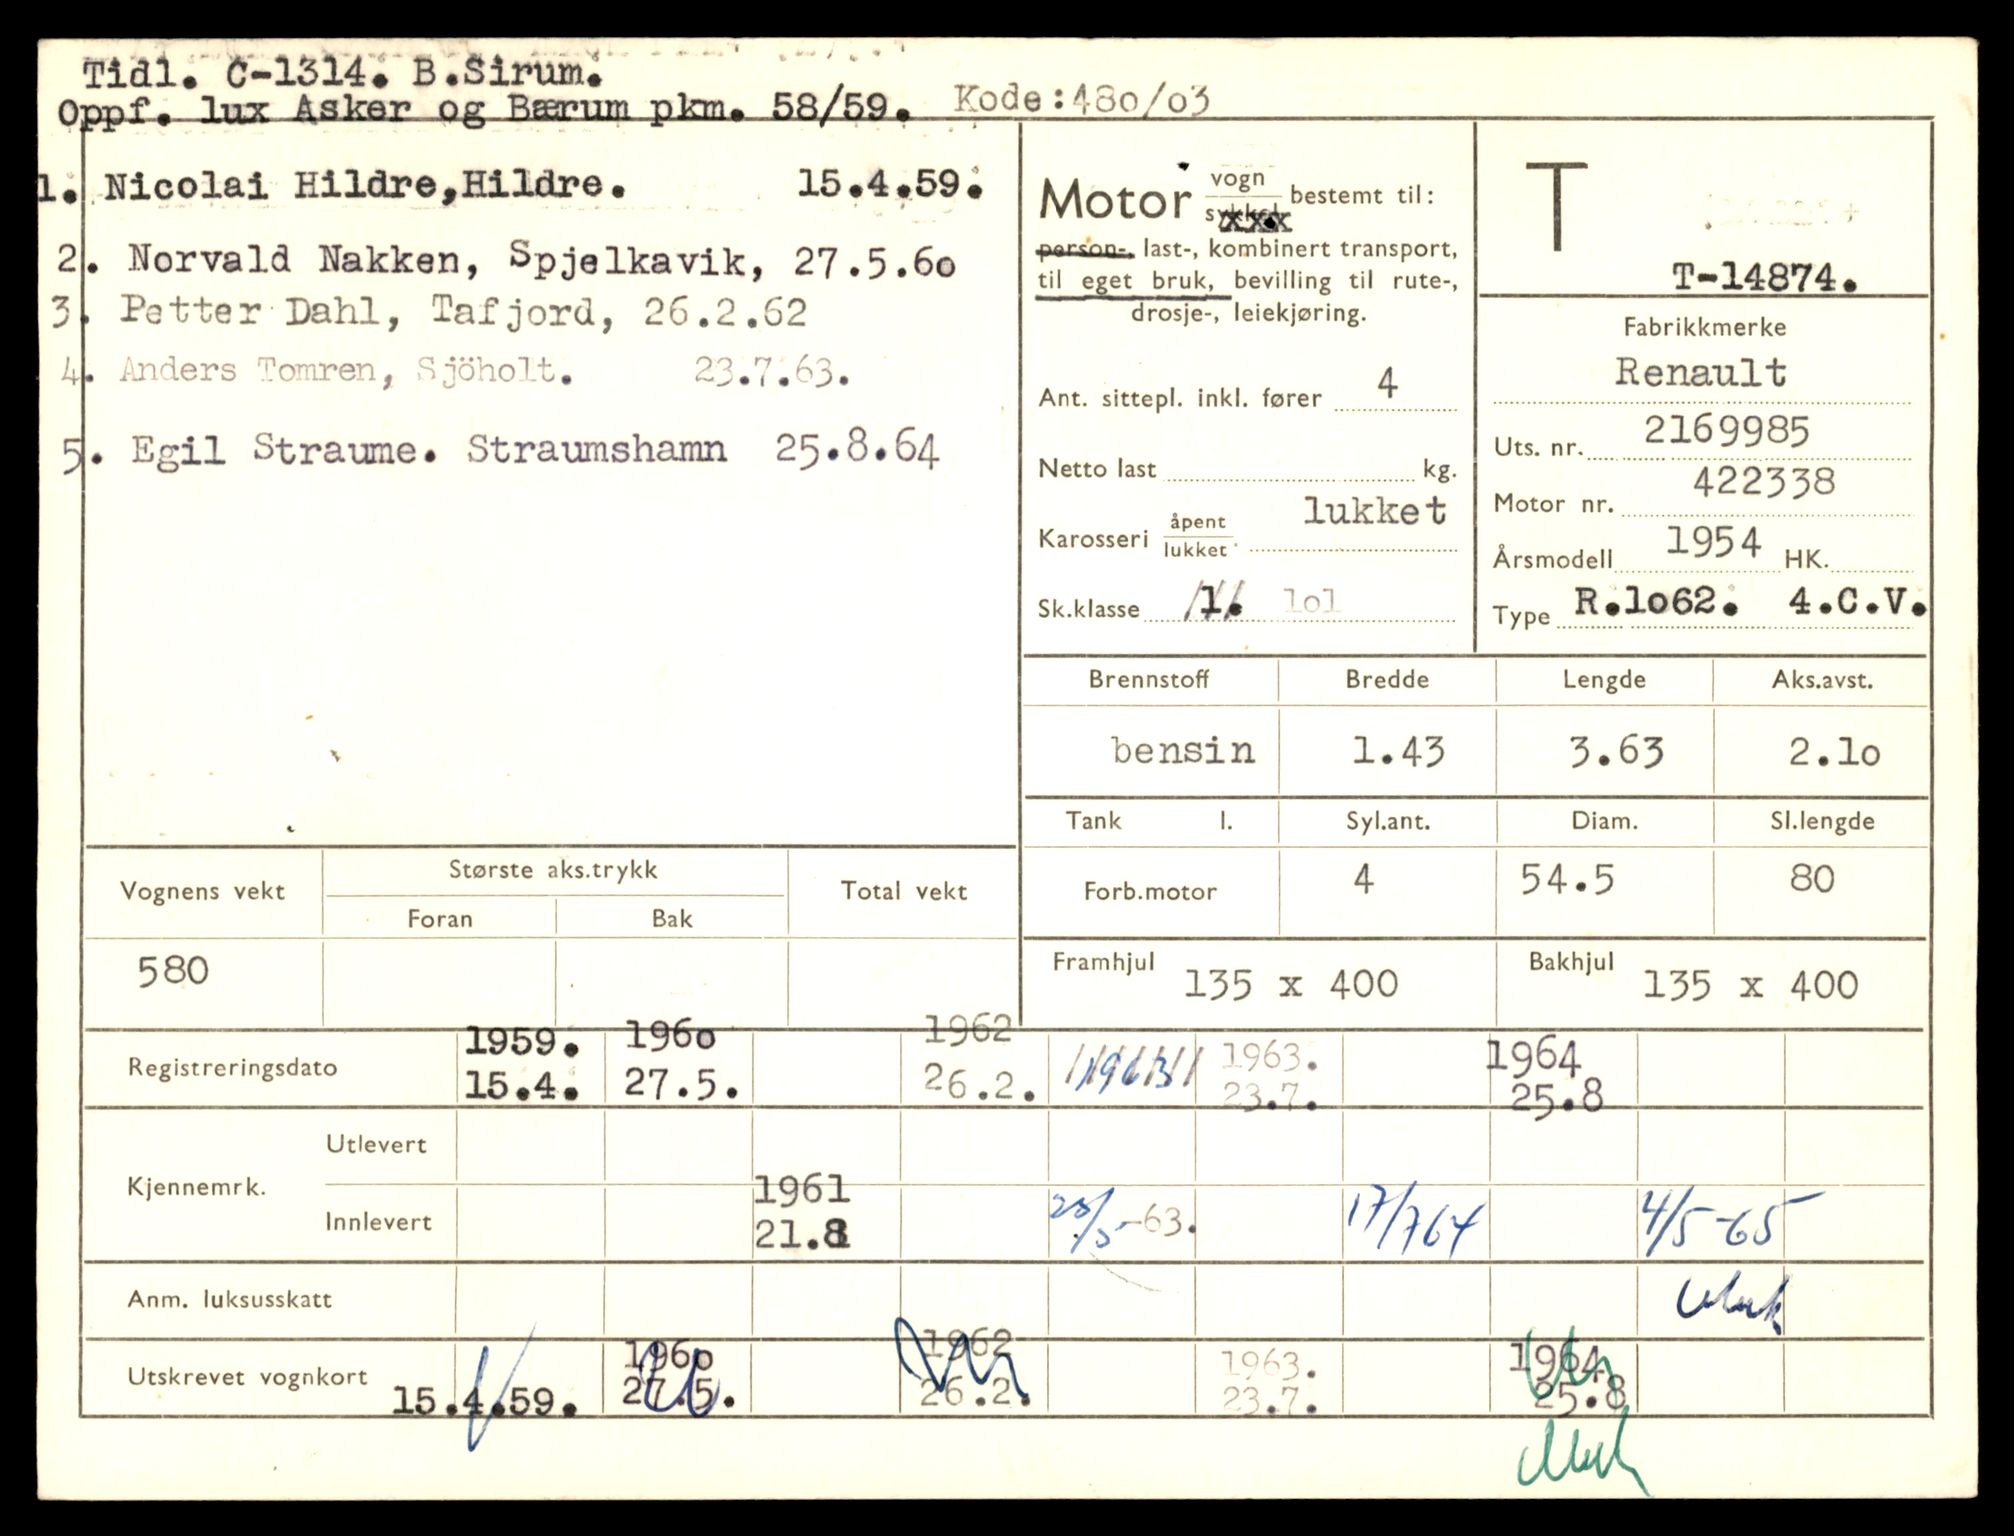 Tidl. C-1314. B.Sirum.
Oppf. lux Asker og Bærum pkm. 58/59. Kode:480/03
1. Nicolai Hildre,Hildre. 15.4.59.
2. Norvald Nakken, Spjelkavik, 27.5.60
3. Petter Dahl, Tafjord, 26.2.62
4. Anders Tomren, Sjöholt. 23.7.63.
5. Egil Straume. Straumshamn 25.8.64
Motor vogn sykkel bestemt til:
person-, last-, kombinert transport,
til eget bruk, bevilling til rute-,
drosje-, leiekjøring.
Ant. sittepl. inkl. fører 4
Netto last kg.
Karosseri åpent lukket lukket
Sk.klasse 1. lol
T
T-14874.
Fabrikkmerke
Renault
Uts. nr. 2169985
Motor nr. 422338
Årsmodell 1954 HK.
Type R.lo62. 4.C.V.
Brennstoff Bredde Lengde Aks.avst.
bensin 1.43 3.63 2.lo
Tank l. Syl.ant. Diam. Sl.lengde
Forb.motor 4 54.5 80
Framhjul 135 x 400 Bakhjul 135 x 400
Vognens vekt Største aks.trykk Total vekt
Foran Bak
580
Registreringsdato 1959. 1960 1962 1963 1963. 1964
15.4. 27.5. 26.2. 23.7. 25.8
Kjennemrk. Utlevert
Innlevert 1961 21.8 -63. 17/7 64 4/5-65
Anm. luksusskatt
Utskrevet vognkort 1960 1962 1963. 1964
15.4.59. 27.5. 26.2. 23.7. 25.8